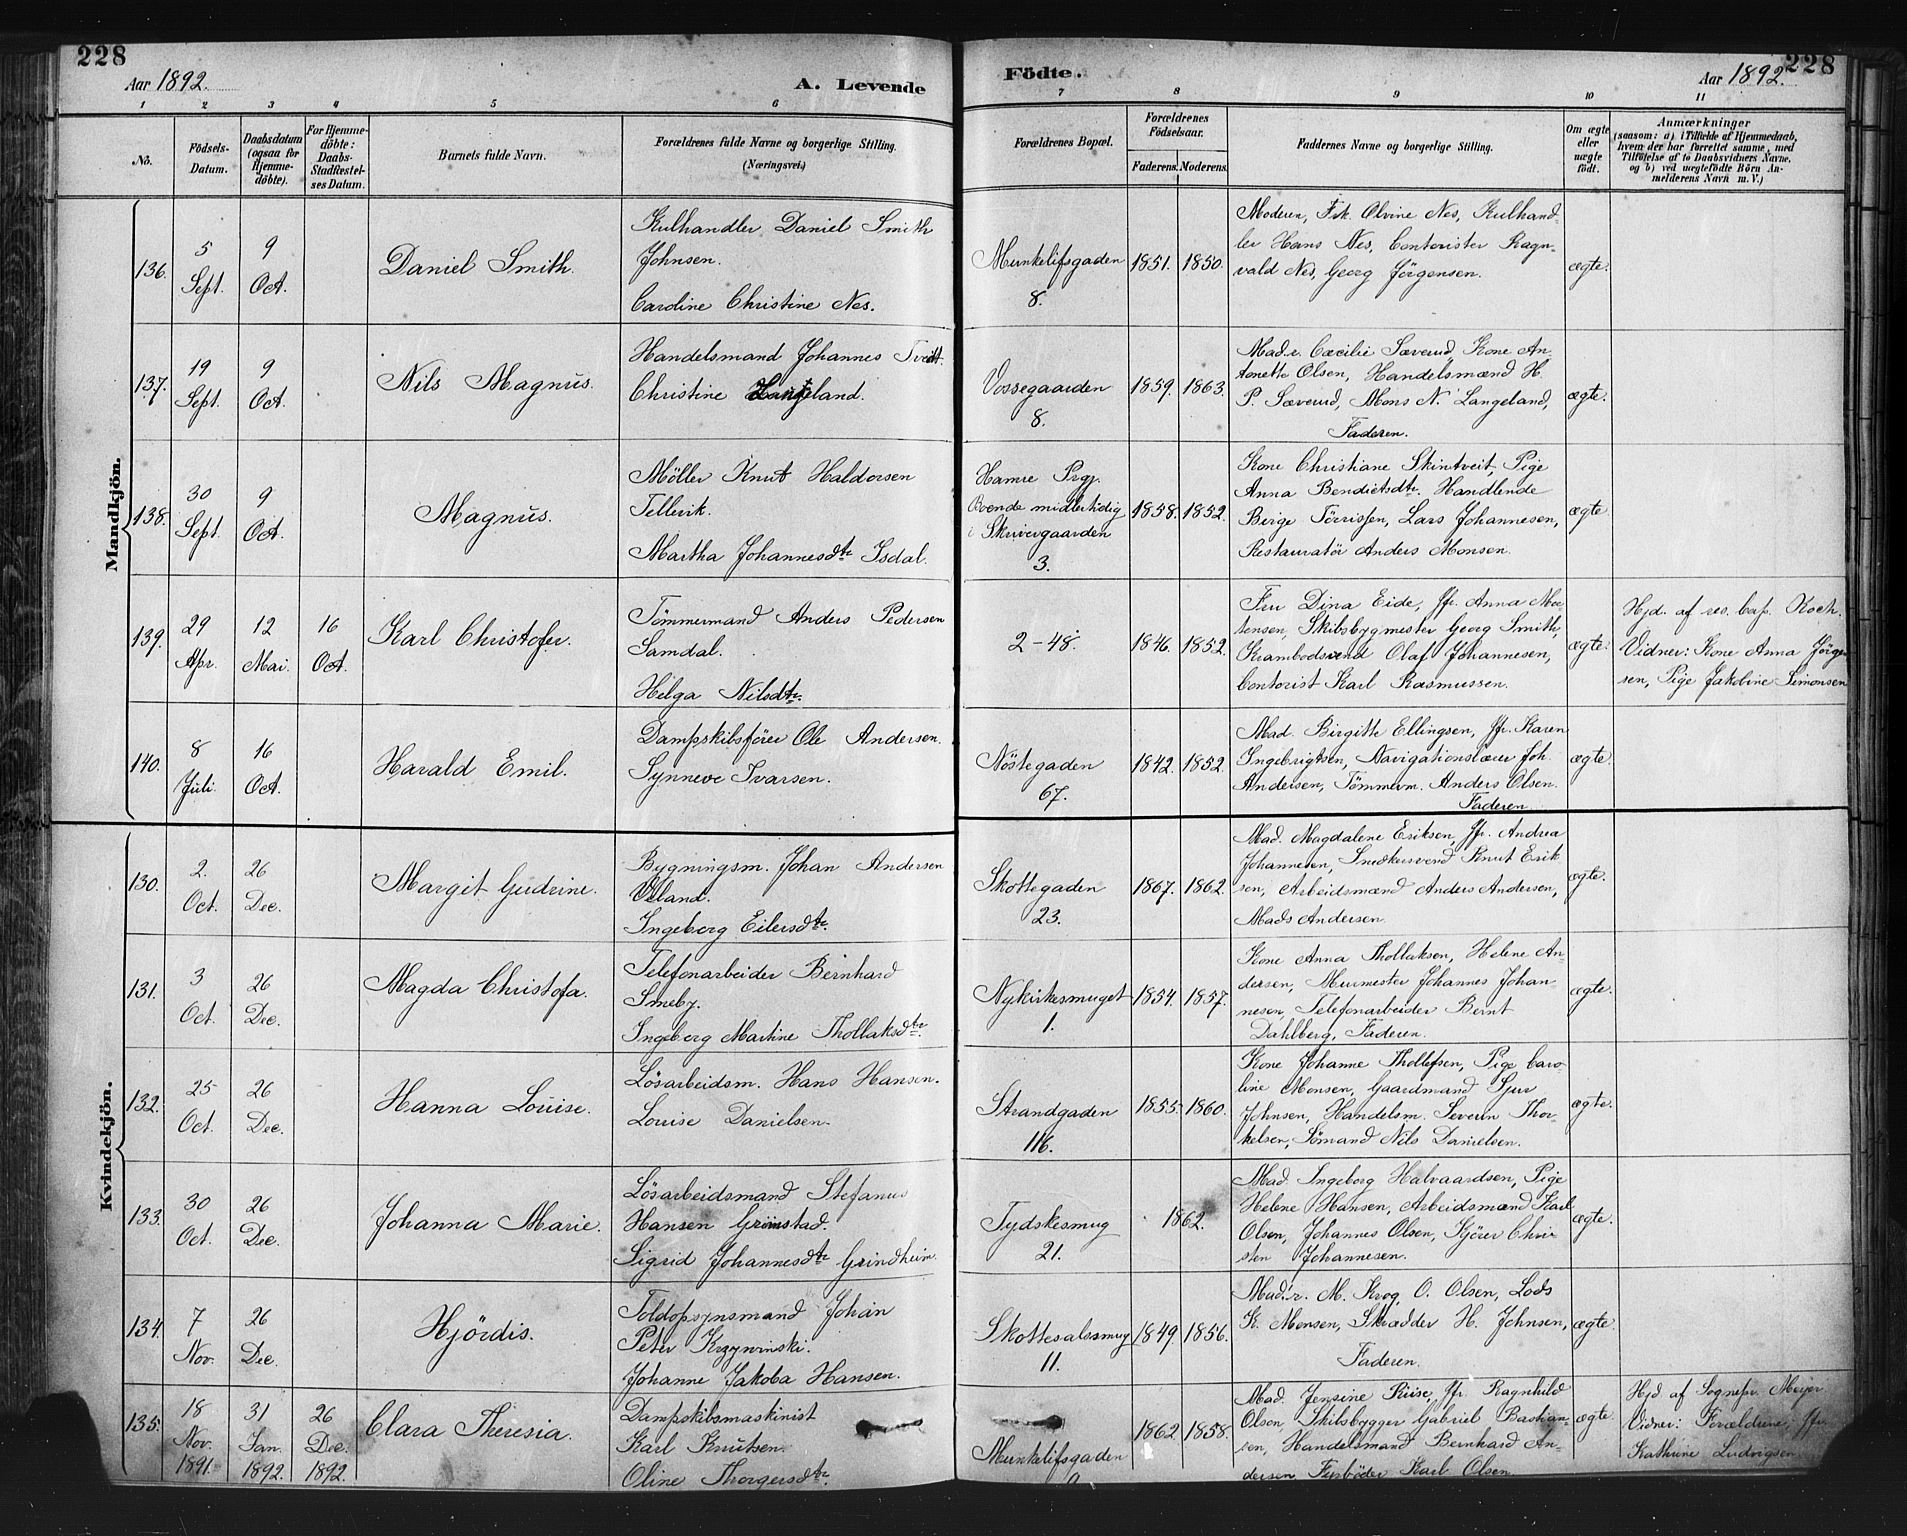 228
Aar 1892.
A. Levende
Födte.
Aar 1892.
228
1 2 3 4 5 6 7 8 9 10 11
No.
Födsels-
Datum.
Daabsdatum
(ogsaa for
Hjemme-
döbte).
For Hjemme-
döbte:
Daabs-
Stadfæstel-
ses Datum.
Barnets fulde Navn.
Forældrenes fulde Navne og borgerlige Stilling.
(Næringsvei.)
Forældrenes Bopæl.
Forældrenes
Födselsaar.
Faderens. Moderens.
Faddernes Navne og borgerlige Stilling.
Om ægte
eller
uægte
födt.
Anmærkninger
(saasom: a) i Tilfælde af Hjemmedaab,
hvem der har forrettet samme, med
Tilföielse af to Daabsvidners Navne,
og b) ved uægtefödte Börn An-
melderens Navn m. V.)
Mandkjön.
136.
5
Sept.
9
Oct.
Daniel Smith.
Kulhandler Daniel Smith
Johnsen.
Caroline Christine Nes.
Munkelifsgaden
8.
1851. 1850.
Moderen, Frk. Olvine Nes, Kulhand-
ler Hans Nes, Contorister Ragn-
vald Nes, Georg Jörgensen.
ægte.
137.
19
Sept.
9
Oct.
Nils Magnus.
Handelsmand Johannes Tveit.
Christine
Vossegaarden
8.
1859. 1863.
Mad.r. Cæcilie Sæverud, Kone An-
tonette Olsen, Handelsmænd H.
P. Sæverud, Mons N. Langeland,
Faderen.
ægte.
138.
30
Sept.
9
Oct.
Magnus.
Möller Knut Haldorsen
Tellevik.
Martha Johannesdtr Isdal.
Hamre Prgj.
Boende midlertidig
i Skrivergaarden
3.
1858. 1852.
Kone Christiane Skintveit, Pige
Anna Bendictsdtr. Handlende
Berge Törrissen, Lars Johannesen,
Restauratör Anders Monsen.
ægte.
139.
29
Apr.
12
Mai.
16
Oct.
Karl Christofer.
Tömmermand Anders Pedersen
Samdal.
Helga Nilsdtr.
2-48.
1846. 1852.
Fru Dina Eide, Jfr. Anna Mor-
tensen, Skibsbygmester Georg Smith,
Krambodsvend Olaf Johannesen,
Contorist Karl Rasmussen.
ægte.
Hjd. af res. Cap. Koch.
Vidner: Kone Anna Jörgen-
sen, Pige Jakobine Simonsen
140.
8
Juli
16
Oct.
Harald Emil.
Dampskibsförer Ole Andersen.
Synneve Ivarsen.
Nöstegaden
67.
1842. 1852.
Mad. Birgitte Ellingsen, Jfr. Karen
Ingebrigtsen, Navigationslærer Joh.
Andersen, Tömmerm. Anders Olsen.
Faderen.
ægte.
Kvindekjön.
130.
2.
Oct.
26
Dec.
Margit Gudrine.
Bygningsm. Johan Andersen
Ingeborg Eilersdtr.
Skottegaden
23.
1867. 1862.
Mad. Magdalene Eriksen, Jfr. Andrea
Johannesen, Snedkersvend Knut Erik
sen, Arbeidsmænd Anders Andersen,
Mads Andersen.
ægte.
131.
3
Oct.
26
Dec.
Magda Christofa.
Telefonarbeider Bernhard
Smeby.
Ingeborg Martine Thollaksdtr.
Nykirkesmuget
1.
1854. 1857.
Kone Anna Thollaksen, Helene An-
dersen, Murmester Johannes Johan-
nesen, Telefonarbeider Bernt
Dahlberg, Faderen.
ægte.
132.
25
Oct.
26
Dec.
Hanna Louise.
Lösarbeidsm. Hans Hansen.
Louise Danielsen.
Strandgaden
116.
1855. 1860.
Kone Johanne Thollefsen, Pige Caro-
line Monsen, Gaardmand Sjur
Johnsen, Handelsm. Severin Thor-
kelsen, Sömand Nils Danielsen.
ægte.
133.
30
Oct.
26
Dec.
Johanna Marie.
Lösarbeidsmand Stefanus
Hansen Grimstad.
Sigrid Johannesdtr Grindheim.
Tydskesmug
21.
1862.
Mad. Ingeborg Halvaardsen, Pige
Helene Hansen, Arbeidsmænd Karl
Olsen, Johannes Olsen, Kjörer Chri-
sten Johannesen.
ægte.
134.
7
Nov.
26
Dec.
Hjördis.
Toldopsynsmand Johan
Peter Krzywinski.
Johanne Jakoba Hansen.
Skottesalssmug
11.
1849. 1856.
Mad.r. M. Krog, O. Olsen, Lods
K. Monsen, Skrædder H. Johnsen,
Faderen.
ægte.
135.
18
Nov.
1891.
31
Jan.
1892.
26
Dec.
1892.
Clara Theresia.
Dampskibsmaskinist
Karl Knutsen.
Oline Thorgersdtr.
Munkelifsgaden
1862 1858.
Mad. Jensine Kiise, Jfr. Ragnhild
Olsen, Skibsbygger Gabriel Bastian-
sen, Handelsmand Bernhard An-
dersen, Fyrböder Karl Olsen
ægte.
Hjd af Sognepr. Meyer
Vidner: Forældrene, Jfr.
Kathrine Ludvigsen